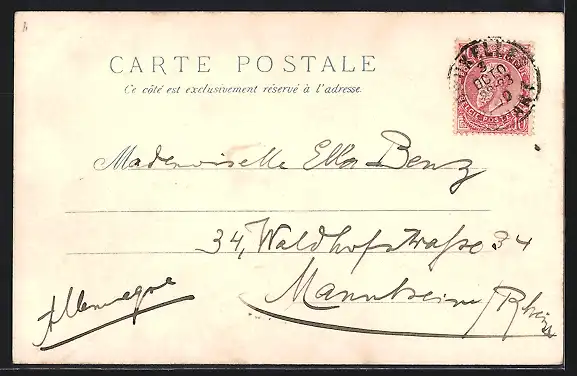 CARTE POSTALE
Ce côté est exclusivement réservé à l'adresse.
BRUXELLES
3
OCTO
Mademoiselle Ella Benz
34, Waldhofstrasse 34
Mannheim / Rhein
Allemagne